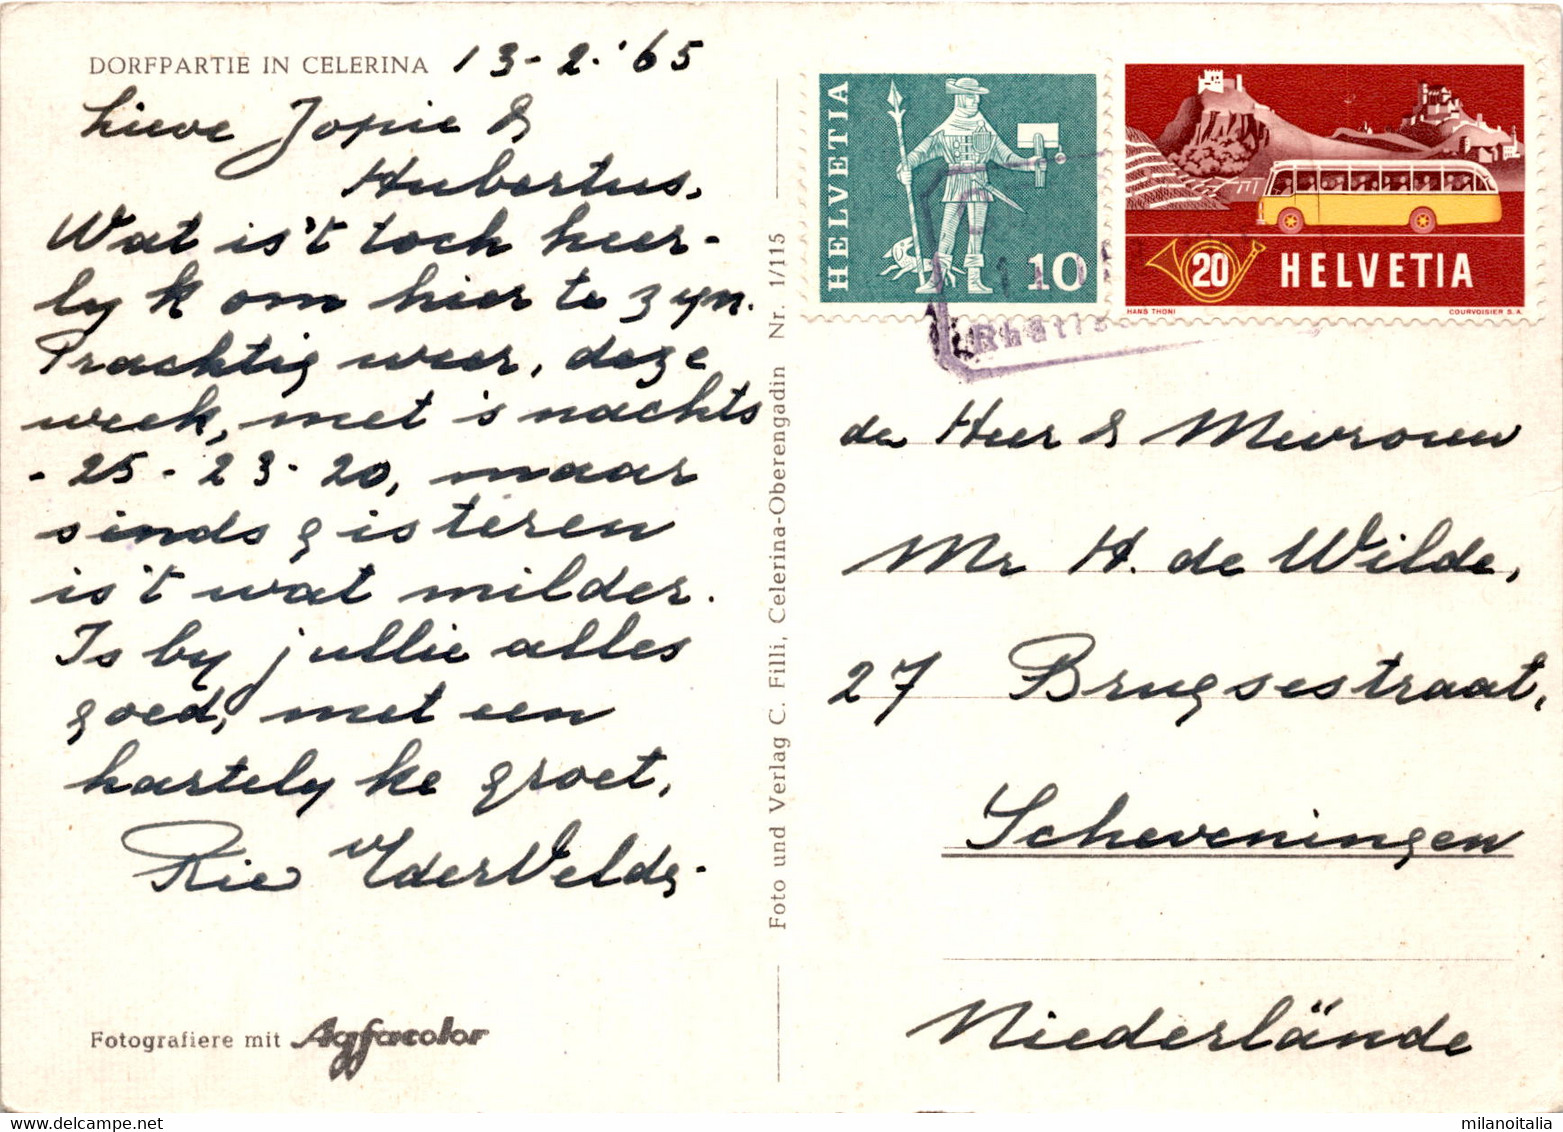 DORFPARTIE IN CELERINA 13-2.'65
Lieve Jopie &
Hubertus,
Wat is't toch heer-
lyk om hier te zyn.
Prachtig weer, deze
week, met 's nachts
-25-23-20, maar
sinds gisteren
is 't wat milder.
Is by jullie alles
goed, met een
hartelyke groet,
Rie
Fotografiere mit Agfacolor
Foto und Verlag C. Filli, Celerina-Oberengadin Nr. 1/115
HELVETIA
10
20 HELVETIA
HANS THONI
COURVOISIER S.A.
de Heer & Mevrouw
Mr H. de Wilde,
27 Brugsestraat,
Scheveningen
Niederlände
milanoitalia